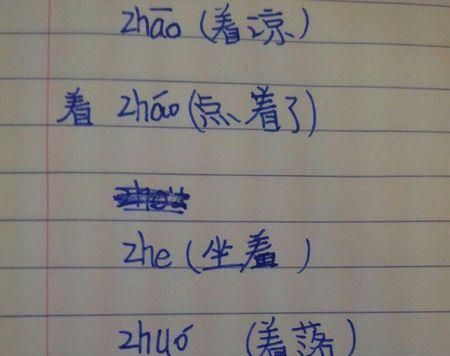 zhāo (着凉)
着 zháo (点着了)
zhe (坐着)
zhuó (着落)